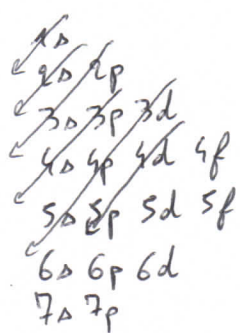 1s
2s 2p
3s 3p 3d
4s 4p 4d 4f
5s 5p 5d 5f
6s 6p 6d
7s 7p